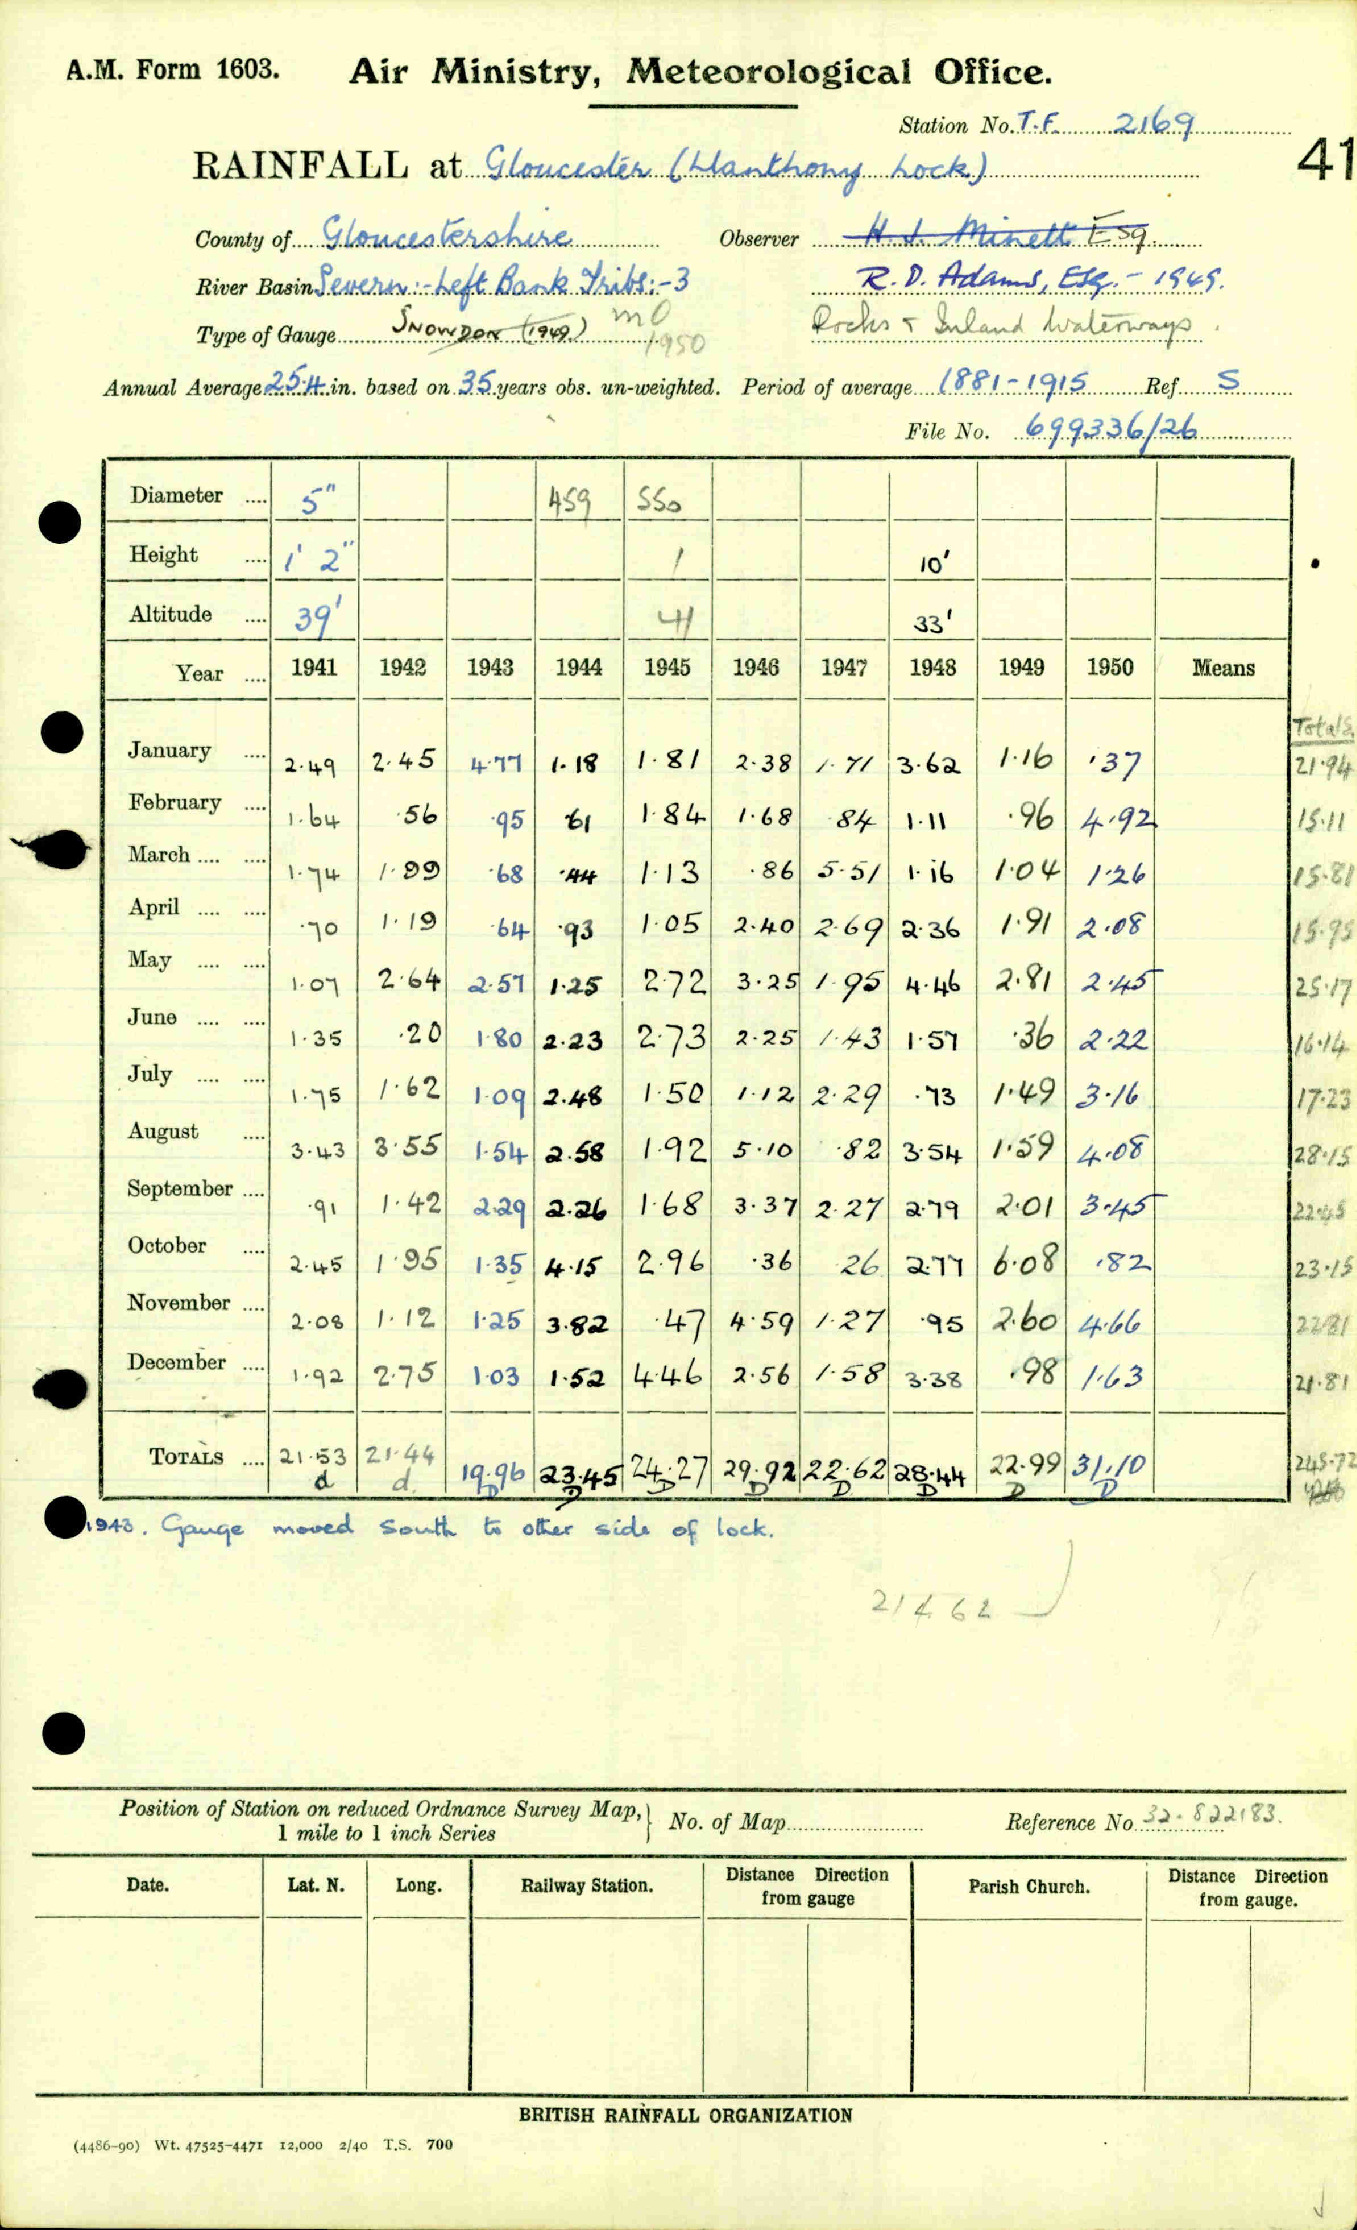 A.M. Form 1603. Air Ministry, Meteorological Office.
Station No. T.F. 2169
41
RAINFALL at Gloucester (Llanthony Lock)
County of Gloucestershire Observer H. J. Minett Esq.
River Basin Severn:-Left Bank Tribs:-3 R. D. Adams, Esq. - 1949.
Type of Gauge SNOWDON (1949) MO 1950 Docks & Inland Waterways.
Annual Average 25.4 in. based on 35 years obs. un-weighted. Period of average 1881-1915 Ref. S
File No. 699336/26
Diameter .... 5" 459 550
Height .... 1' 2" 1 10'
Altitude .... 39' 41 33'
Year .... 1941 1942 1943 1944 1945 1946 1947 1948 1949 1950 Means
Totals
January .... 2.49 2.45 4.77 1.18 1.81 2.38 1.71 3.62 1.16 .37 21.94
February .... 1.64 .56 .95 .61 1.84 1.68 .84 1.11 .96 4.92 15.11
March .... .... 1.74 1.99 .68 .44 1.13 .86 5.51 1.16 1.04 1.26 15.81
April .... .... .70 1.19 .64 .93 1.05 2.40 2.69 2.36 1.91 2.08 15.95
May .... .... 1.07 2.64 2.57 1.25 2.72 3.25 1.95 4.46 2.81 2.45 25.17
June .... .... 1.35 .20 1.80 2.23 2.73 2.25 1.43 1.57 .36 2.22 16.14
July .... .... 1.75 1.62 1.09 2.48 1.50 1.12 2.29 .73 1.49 3.16 17.23
August .... 3.43 3.55 1.54 2.58 1.92 5.10 .82 3.54 1.59 4.08 28.15
September .... .91 1.42 2.29 2.26 1.68 3.37 2.27 2.79 2.01 3.45 22.45
October .... 2.45 1.95 1.35 4.15 2.96 .36 .26 2.77 6.08 .82 23.15
November .... 2.08 1.12 1.25 3.82 .47 4.59 1.27 .95 2.60 4.66 22.81
December .... 1.92 2.75 1.03 1.52 4.46 2.56 1.58 3.38 .98 1.63 21.81
TOTALS .... 21.53 21.44 19.96 23.45 24.27 29.92 22.62 28.44 22.99 31.10 245.72
d d D D D D D D D D
1943. Gauge moved South to other side of lock.
21462
Position of Station on reduced Ordnance Survey Map, 1 mile to 1 inch Series No. of Map Reference No. 32.822183.
Date. Lat. N. Long. Railway Station. Distance Direction from gauge Parish Church. Distance Direction from gauge.
BRITISH RAINFALL ORGANIZATION
(4486-90) Wt. 47525-4471 12,000 2/40 T.S. 700